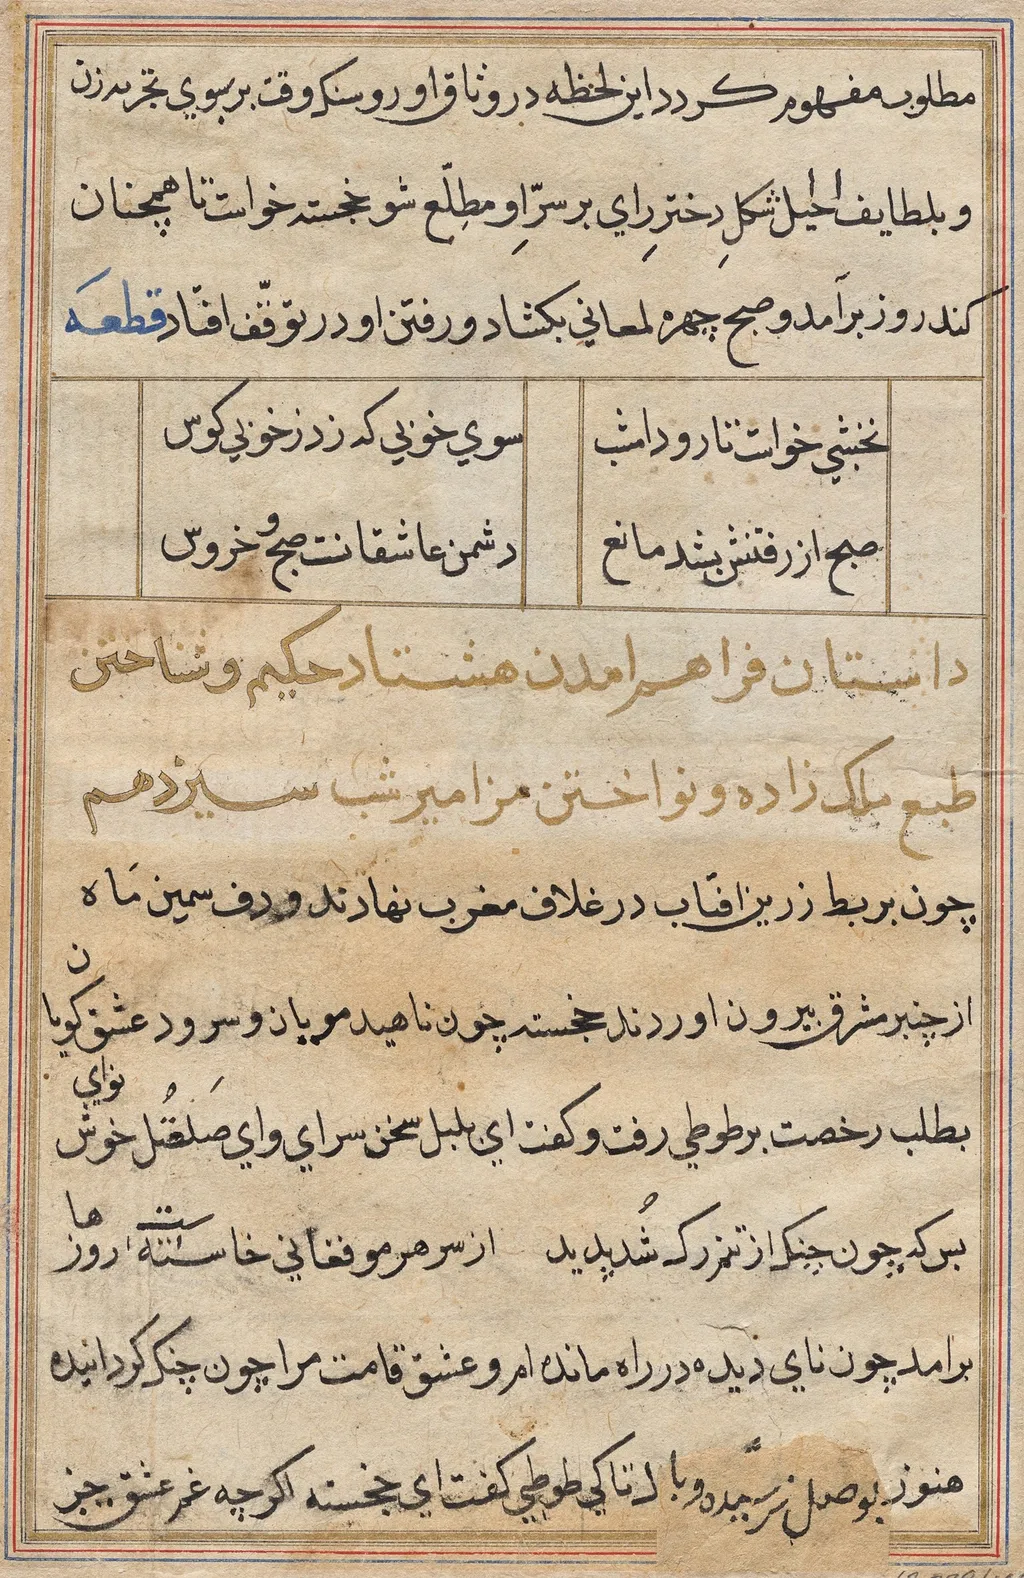 مطلوب مفهوم كردد اين لحظه در وثاق او رو سنك وقت بر سوي تجربه زن
و بلطايف الحيل شكل دختر راي بر سرّ او مطلّع شو خجسته خواست تا همچنان
كند روز برآمد و صبح چهره لمعاني بكشاد و رفتن او در توقّف افتاد قطعه
نخشبي خواست تا رود امشب سوي خوبي كه زد ز خوبي كوس
صبح از رفتنش بشد مانع دشمن عاشقانت صبح و خروس
داستان فراهم امدن هشتاد حكيم و شناختن
طبع ملك زاده و نواختن مزامير شب سيزدهم
چون بربط زرين افتاب در غلاف مغرب نهادند و دف سيمين ماه
از چنبر مشرق بيرون اوردند خجسته چون ناهيد مويان و سرود عشق كويان
بطلب رخصت بر طوطي رفت و كفت اي بلبل سخن سراي و اي صلصل خوش نواي
بس كه چون چنك از تنم رك شد پديد از سر هر مو فغاني خاست روزها
برامد چون ناي ديده در راه مانده ام و عشق قامت مرا چون چنك كردانيده
هنوز بوصل نرسيده و با ل تا كي طوطي كفت اي خجسته اكرچه غم عشق چيز